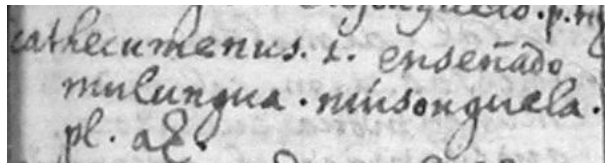 cathecumenus. i. enseñado
mulungua. musonguela.
pl. a&.